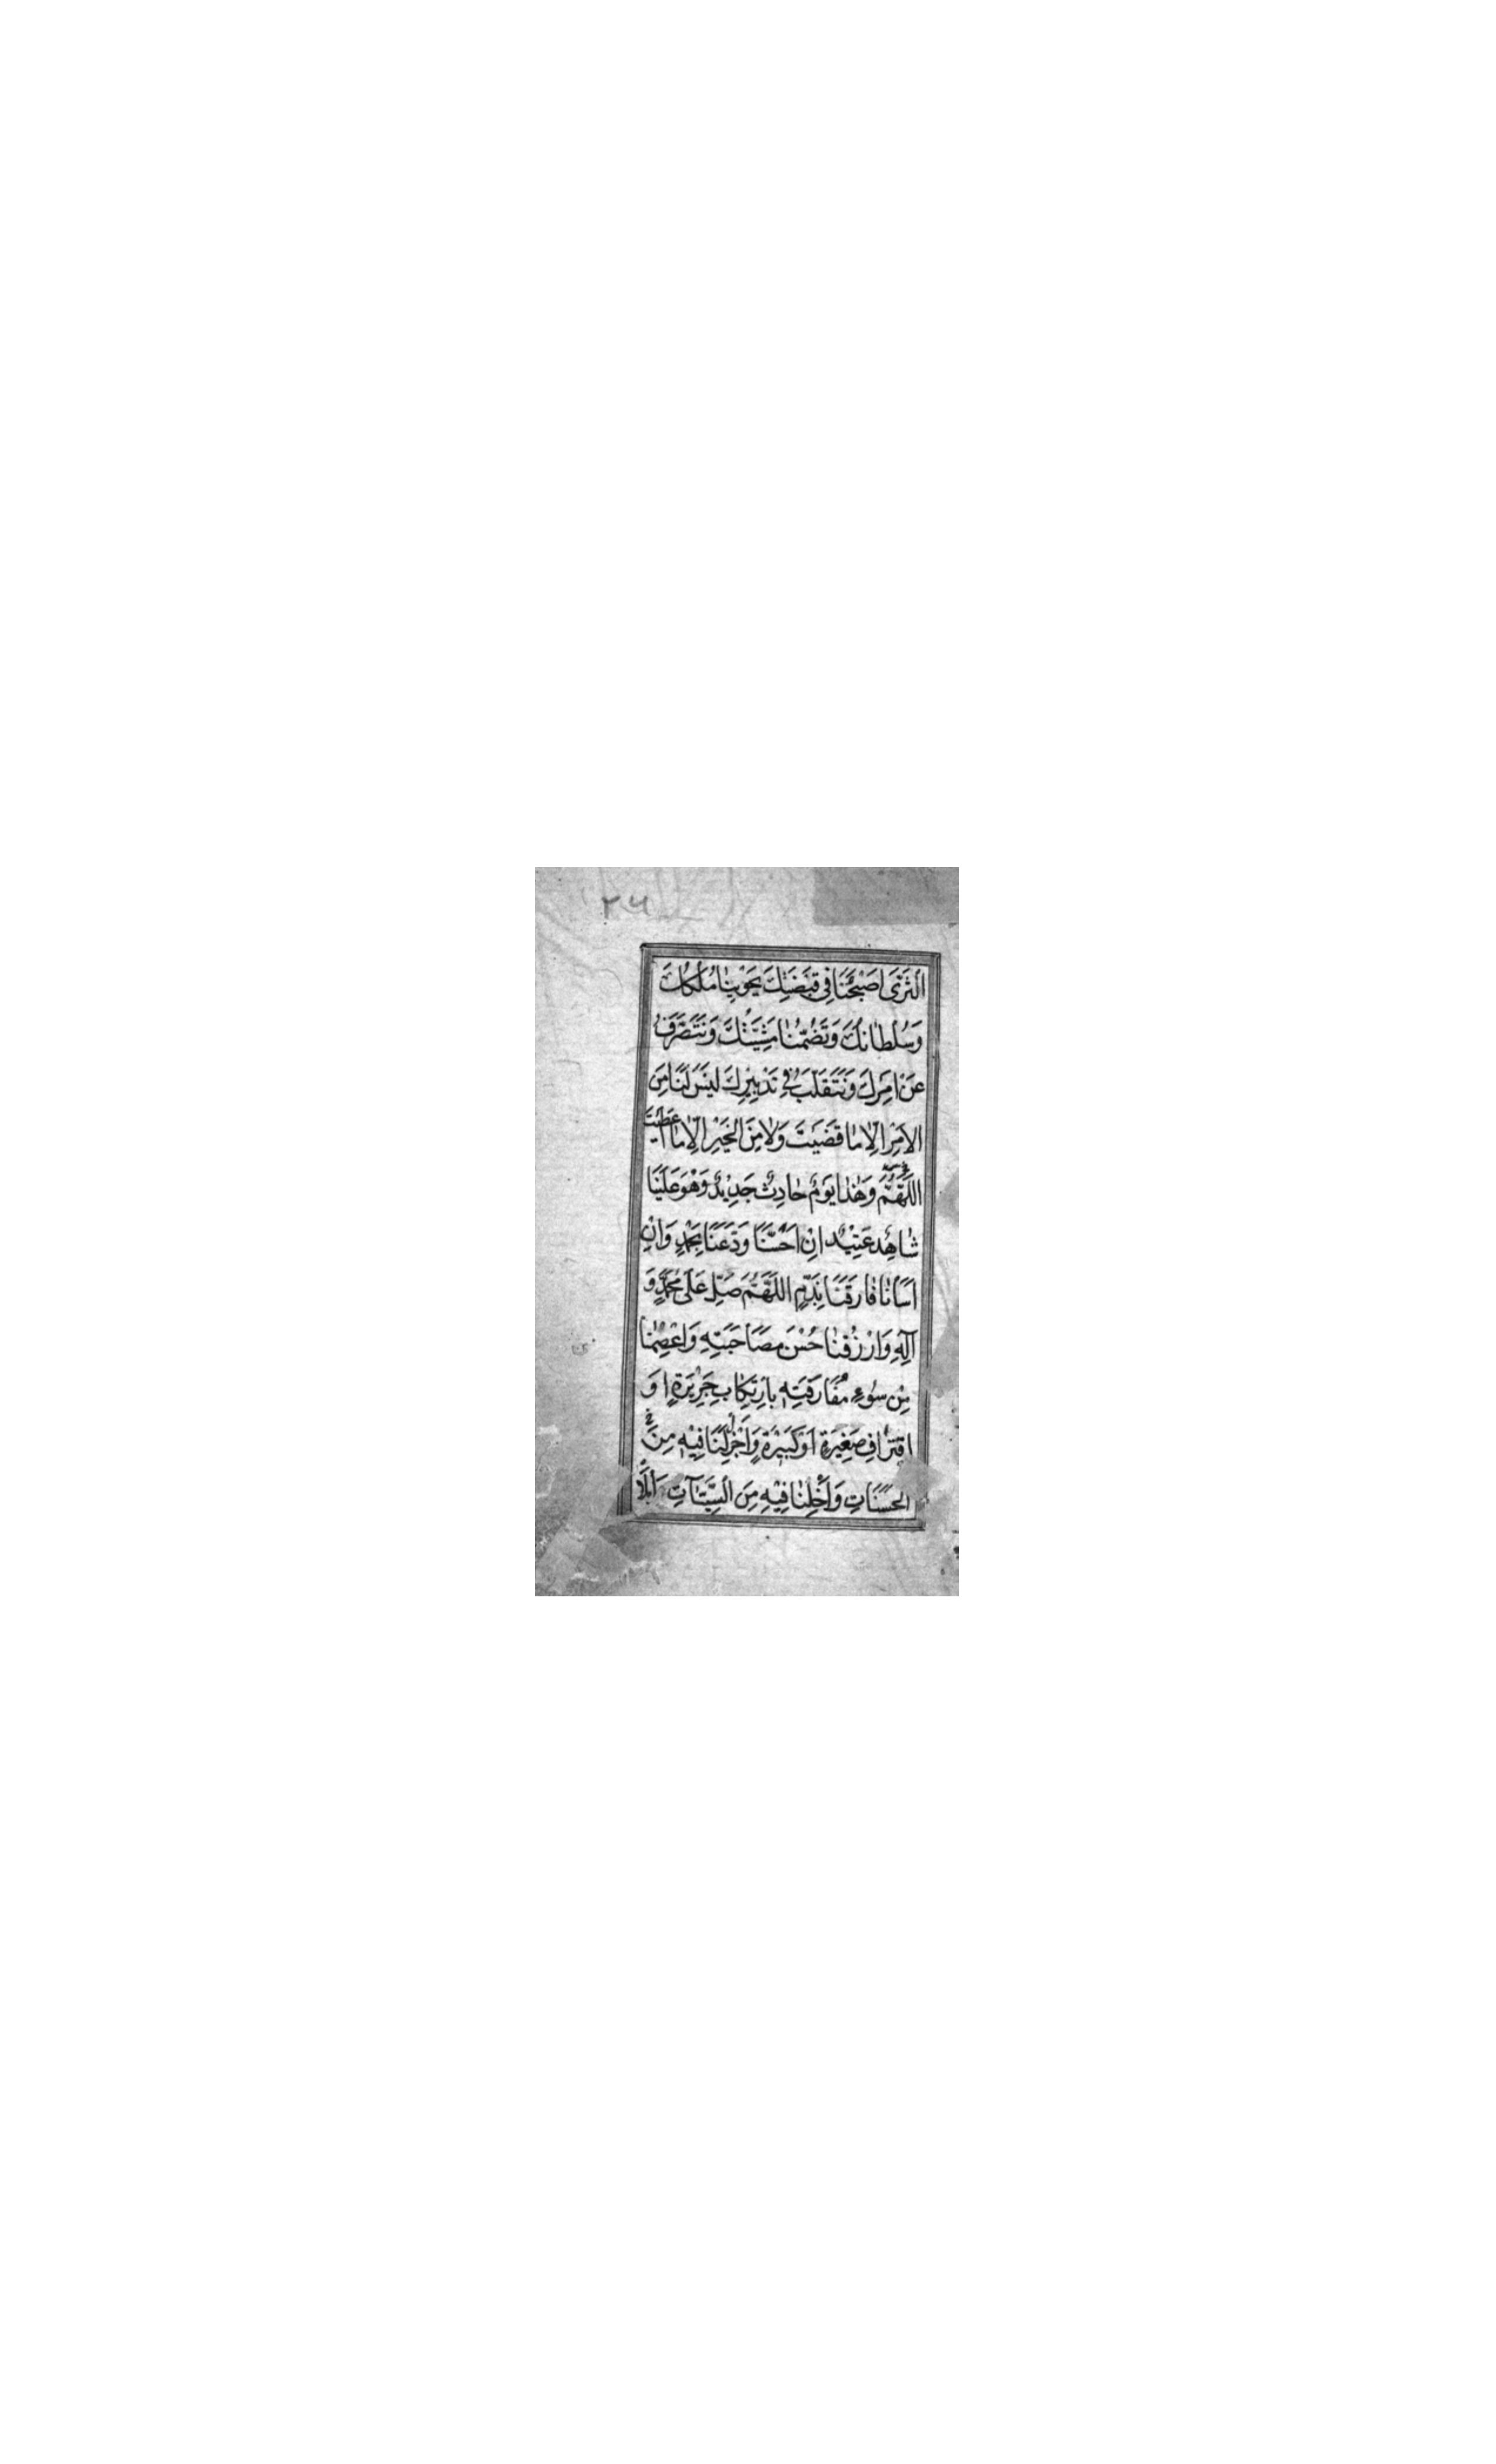 ٢٦
الثَّرَىٰ اَصْبَحْنَا فِي قَبْضَتِكَ يَحْوِينَا مُلْكُكَ
وَسُلْطَانُكَ وَتَضُمُّنَا مَشِيَّتُكَ وَنَتَصَرَّفُ
عَنْ اَمْرِكَ وَنَتَقَلَّبُ فِي تَدْبِيرِكَ لَيْسَ لَنَا مِنَ
الْاَمْرِ اِلَّا مَا قَضَيْتَ وَلَا مِنَ الْخَيْرِ اِلَّا مَا اَعْطَيْتَ
اَللّٰهُمَّ وَهٰذَا يَوْمٌ حَادِثٌ جَدِيدٌ وَهُوَ عَلَيْنَا
شَاهِدٌ عَتِيدٌ اِنْ اَحْسَنَّا وَدَّعَنَا بِحَمْدٍ وَاِنْ
اَسَأْنَا فَارَقَنَا بِذَمٍّ اَللّٰهُمَّ صَلِّ عَلَىٰ مُحَمَّدٍ وَ
آلِهِ وَارْزُقْنَا حُسْنَ مُصَاحَبَتِهِ وَاعْصِمْنَا
مِنْ سُوءِ مُفَارَقَتِهِ بِارْتِكَابِ جَرِيرَةٍ اَوِ
اقْتِرَافِ صَغِيرَةٍ اَوْ كَبِيرَةٍ وَاَجْزِلْ لَنَا فِيهِ مِنَ
الْحَسَنَاتِ وَاَخْلِنَا فِيهِ مِنَ السَّيِّئَاتِ